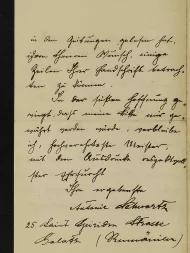 in den Zeitungen gelesen hat,
ihren theuren Wunsch, einige
Zeilen Ihrer Handschrift betrach-
ten zu können.
In der süßen Hoffnung ge-
wiegt, daß meine Bitte mir ge-
währt werden würde, verbleibe
ich, hochverehrtester Meister,
mit dem Ausdrucke
ster Ehrfurcht
Ihre ergebenste
Antonie Schwartz
25 Saint Strasse
Galatz (Rumänien)